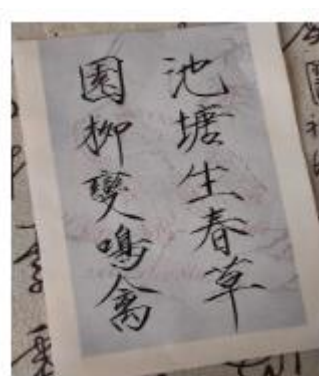 池塘生春草
園柳變鳴禽